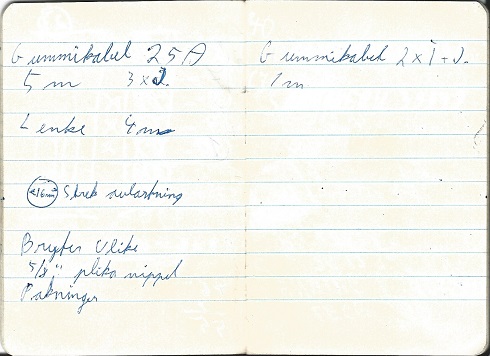 Gummikabel 25A
5 m 3 x 2.
Lenke 4 m
Strek avlastning
Bryter Ulike
5/8" plika nippel
Pakninger
Gummikabel 2x1+J.
1 m